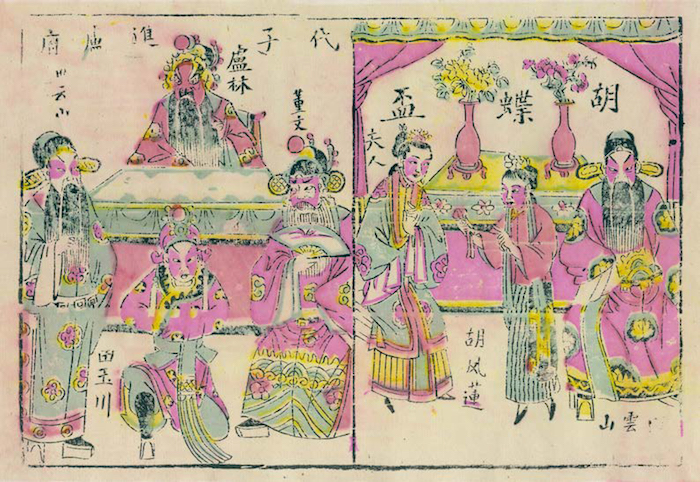 胡蝶盃
夫人
胡凤蓮
雲山
代子進府
盧林
董文
云山
田玉川